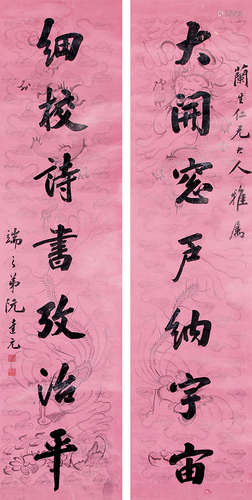 蘭生仁兄大人雅屬
大開窓戶納宇宙
細校詩書攷治平
端之弟阮圭元